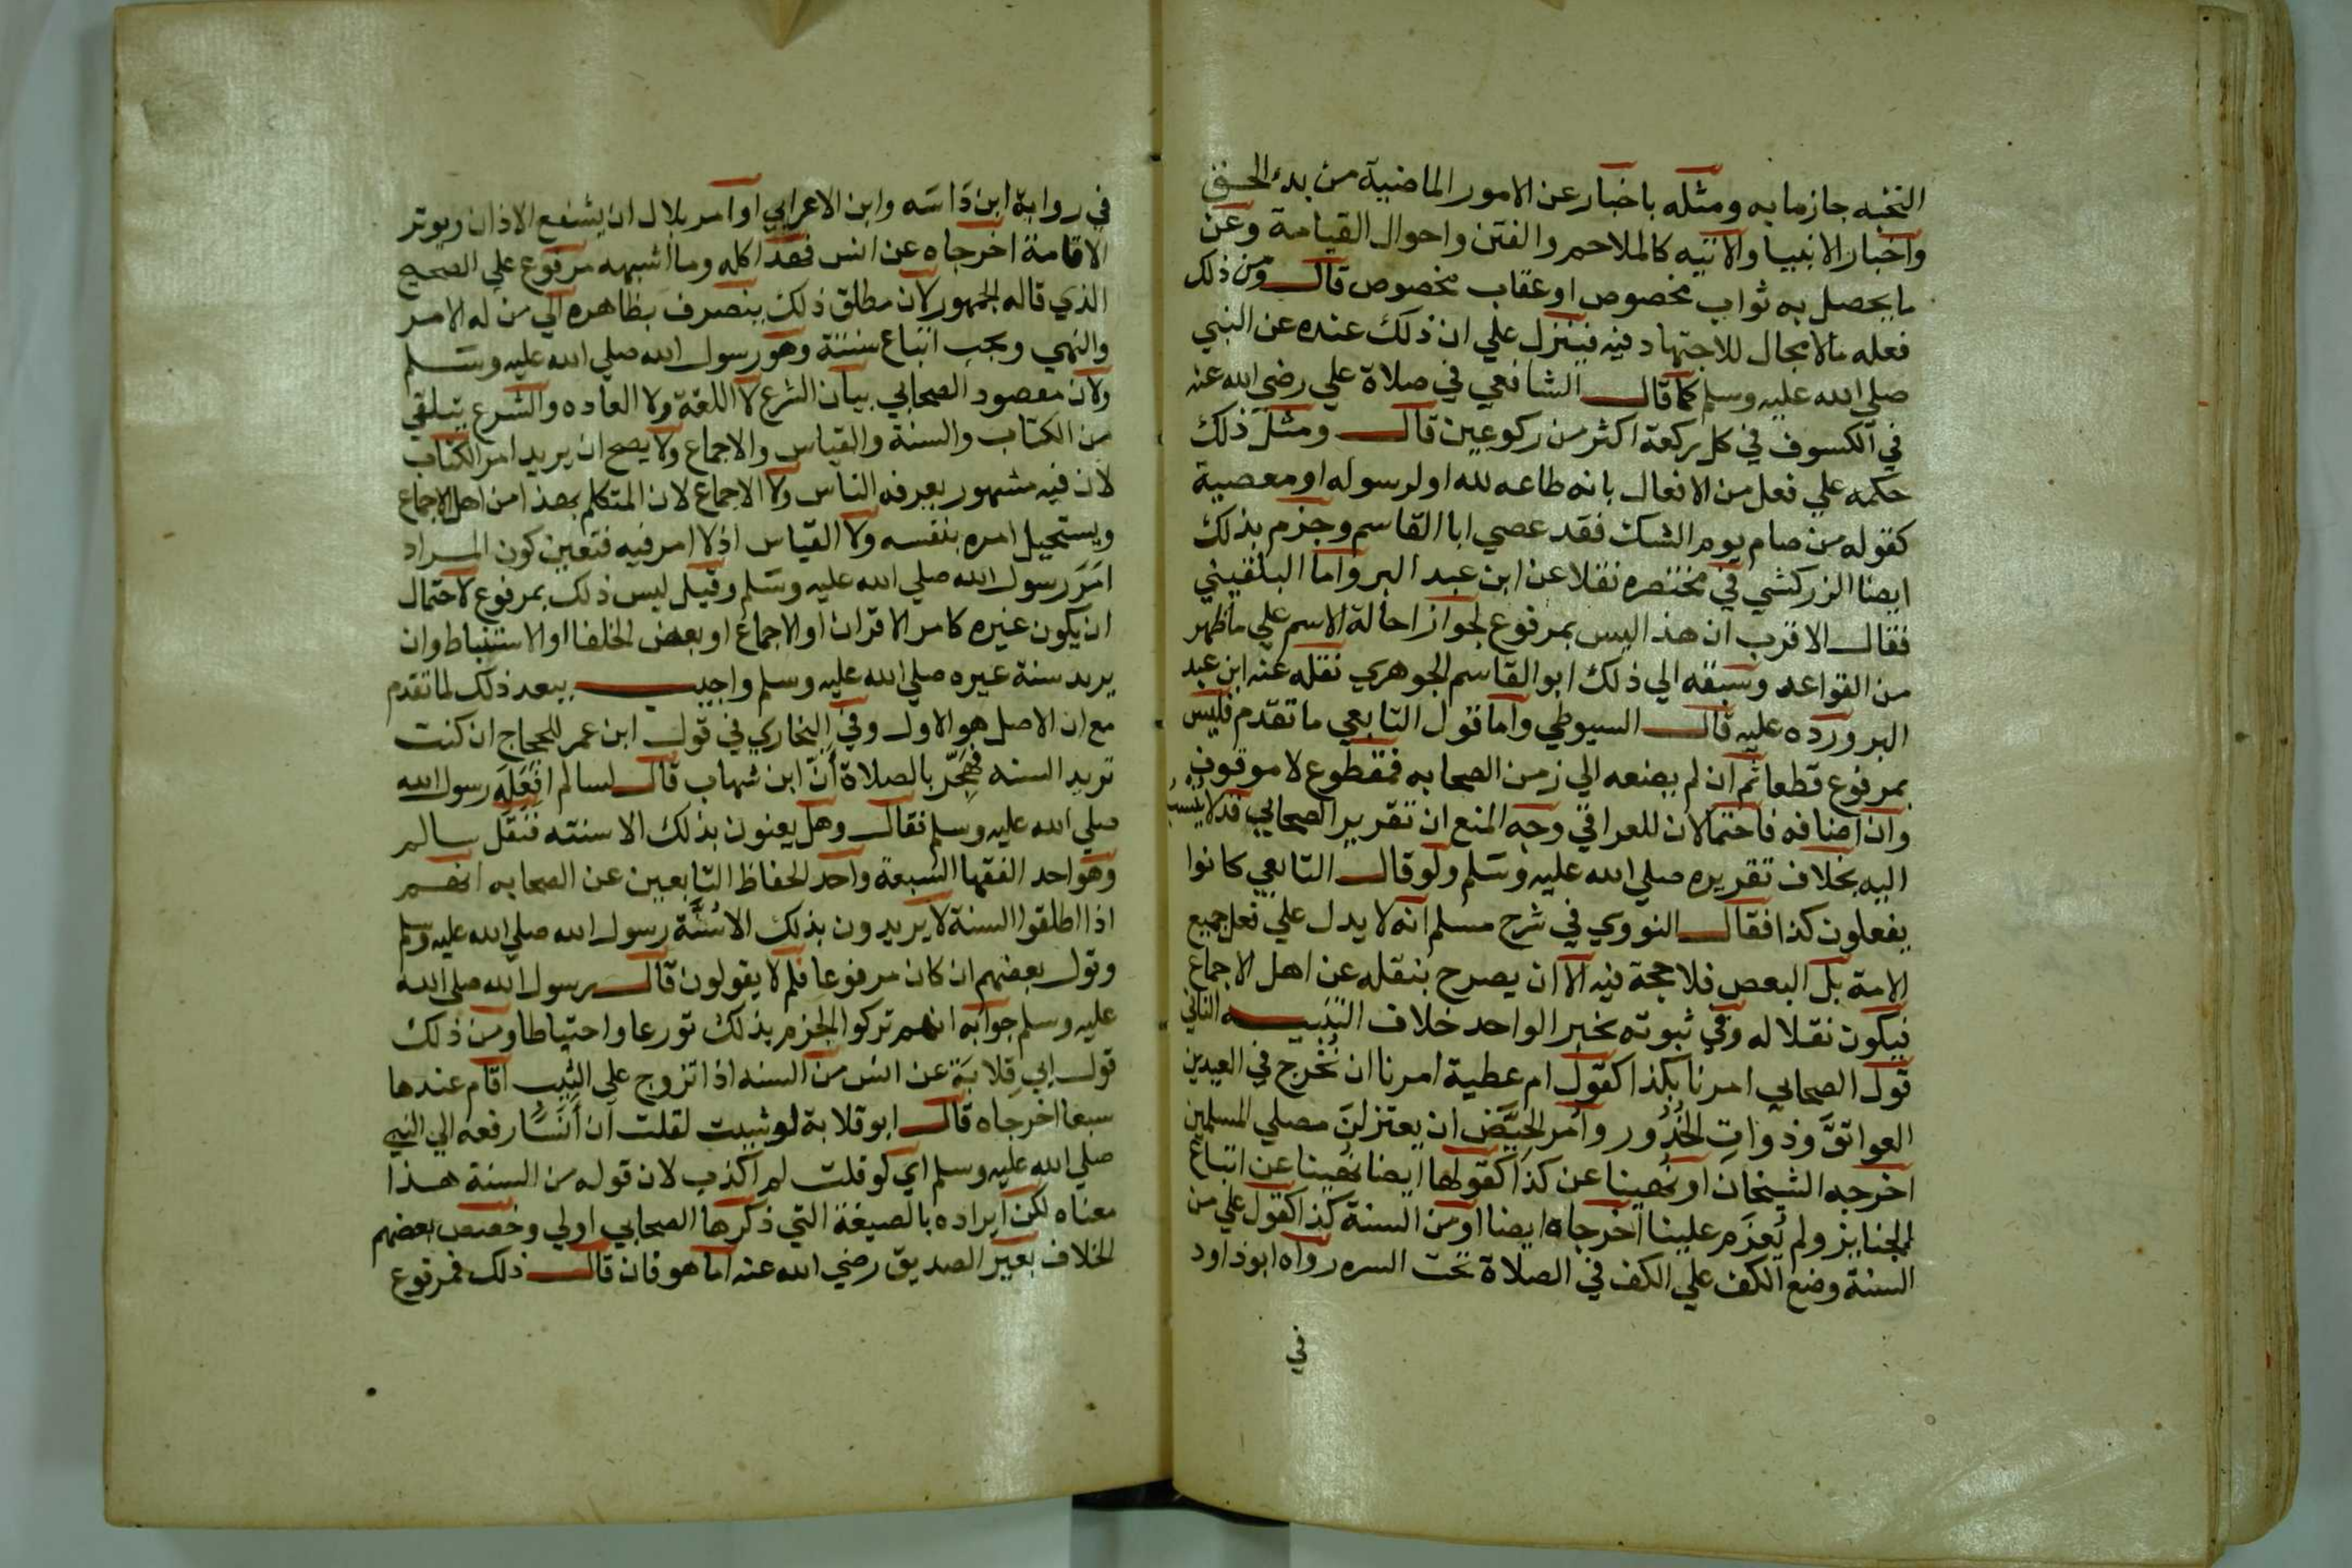 النخبه جازما به ومثله باخبار عن الامور الماضية من بدء الخلق
واخبار الانبيا والاتيه كالملاحم والفتن واحوال القيامة وعن
ما يحصل به ثواب مخصوص او عقاب مخصوص قال ومن ذلك
فعله مالا مجال للاجتهاد فيه فينزل علي ان ذلك عنده عن النبي
صلي الله عليه وسلم كما قال الشافعي في صلاة علي رضي الله عنه
في الكسوف في كل ركعة اكثر من ركوعين قال ومثل ذلك
حكمه علي فعل من الافعال بانه طاعه لله او لرسوله او معصية
كقوله من صام يوم الشك فقد عصي ابا القاسم وجزم بذلك
ايضا الزركشي في مختصره نقلا عن ابن عبد البر واما البلقيني
فقال الاقرب ان هذا ليس بمرفوع لجواز احالة الاسم علي ما ظهر
من القواعد وسبقه الي ذلك ابو القاسم الجوهري نقله عنه ابن عبد
البر ورده عليه قال السيوطي واما قول التابعي ما تقدم فليس
بمرفوع قطعا ثم ان لم يضفه الي زمن الصحابه فمقطوع لا موقوف
وان اضافه فاحتمالان للعراقي وجه المنع ان تقرير الصحابي قد لا ينسب
اليه بخلاف تقريره صلي الله عليه وسلم ولو قال التابعي كانوا
يفعلون كذا فقال النووي في شرح مسلم انه لا يدل علي فعل جميع
الامة بل البعض فلا حجة فيه الا ان يصرح بنقله عن اهل الاجماع
فيكون نقلا له وفي ثبوته بخبر الواحد خلاف التنبيه الثاني
قول الصحابي امرنا بكذا كقول ام عطية امرنا ان نخرج في العيدين
العواتقَ وذواتِ الخُدُور وامر الحيَّض ان يعتزلنَ مصلي المسلمين
اخرجه الشيخان او نُهينا عن كذا كقولها ايضا نُهينا عن اتباع
الجنايز ولم يُعزَم علينا اخرجاه ايضا او من السنة كذا كقول علي من
السنة وضع الكف علي الكف في الصلاة تحت السره رواه ابو داود
في
في رواية ابن دَاسَه وابن الاعرابي او امر بلال ان يشفع الاذان ويوتر
الاقامة اخرجاه عن انس فهذا كله وما اشبهه مرفوع علي الصحيح
الذي قاله الجمهور لان مطلق ذلك ينصرف بظاهره الي من له الامر
والنهي ويجب اتباع سننه وهو رسول الله صلي الله عليه وسلم
ولان مقصود الصحابي بيان الشرع لا اللغة ولا العاده والشرع يتلقي
من الكتاب والسنة والقياس والاجماع ولا يصح ان يريد امر الكتاب
لان فيه مشهور يعرفه الناس ولا الاجماع لان المتكلم بهذا من اهل الاجماع
ويستحيل امره بنفسه ولا القياس اذ لا امر فيه فتعين كون المراد
امَرَ رسول الله صلي الله عليه وسلم وقيل ليس ذلك بمرفوع لاحتمال
ان يكون غيره كامر القران او الاجماع او بعض الخلفا او الاستنباط وان
يريد سنة غيره صلي الله عليه وسلم واجيب ببعد ذلك لما تقدم
مع ان الاصل هو الاول وفي البخاري في قول ابن عمر للحجاج ان كنت
تريد السنه فهَجِّر بالصلاة أنّ ابن شهاب قال لسالم افَعَلَه رسول الله
صلي الله عليه وسلم فقال وهل يعنون بذلك الا سنته فنقل سالم
وهو احد الفقها السبعة واحد الحفاظ التابعين عن الصحابه انهم
اذا اطلقوا السنة لا يريدون بذلك الا سُنَّة رسول الله صلي الله عليه وسلم
وقول بعضهم ان كان مرفوعا فلم لا يقولون قال رسول الله صلي الله
عليه وسلم جوابه انهم تركوا الجزم بذلك تورعا واحتياطا ومن ذلك
قول ابي قِلابَة عن انس من السنه اذا تزوج علي الثيِّب اقام عندها
سبعا اخرجاه قال ابو قلابة لو شيت لقلت ان أنَسًا رفعه الي النبي
صلي الله عليه وسلم اي لو قلت لم اكذب لان قوله من السنة هذا
معناه لكن ايراده بالصيغة التي ذكرها الصحابي اولي وخصص بعضهم
الخلاف بغير الصديق رضي الله عنه اما هو فان قال ذلك فمرفوع